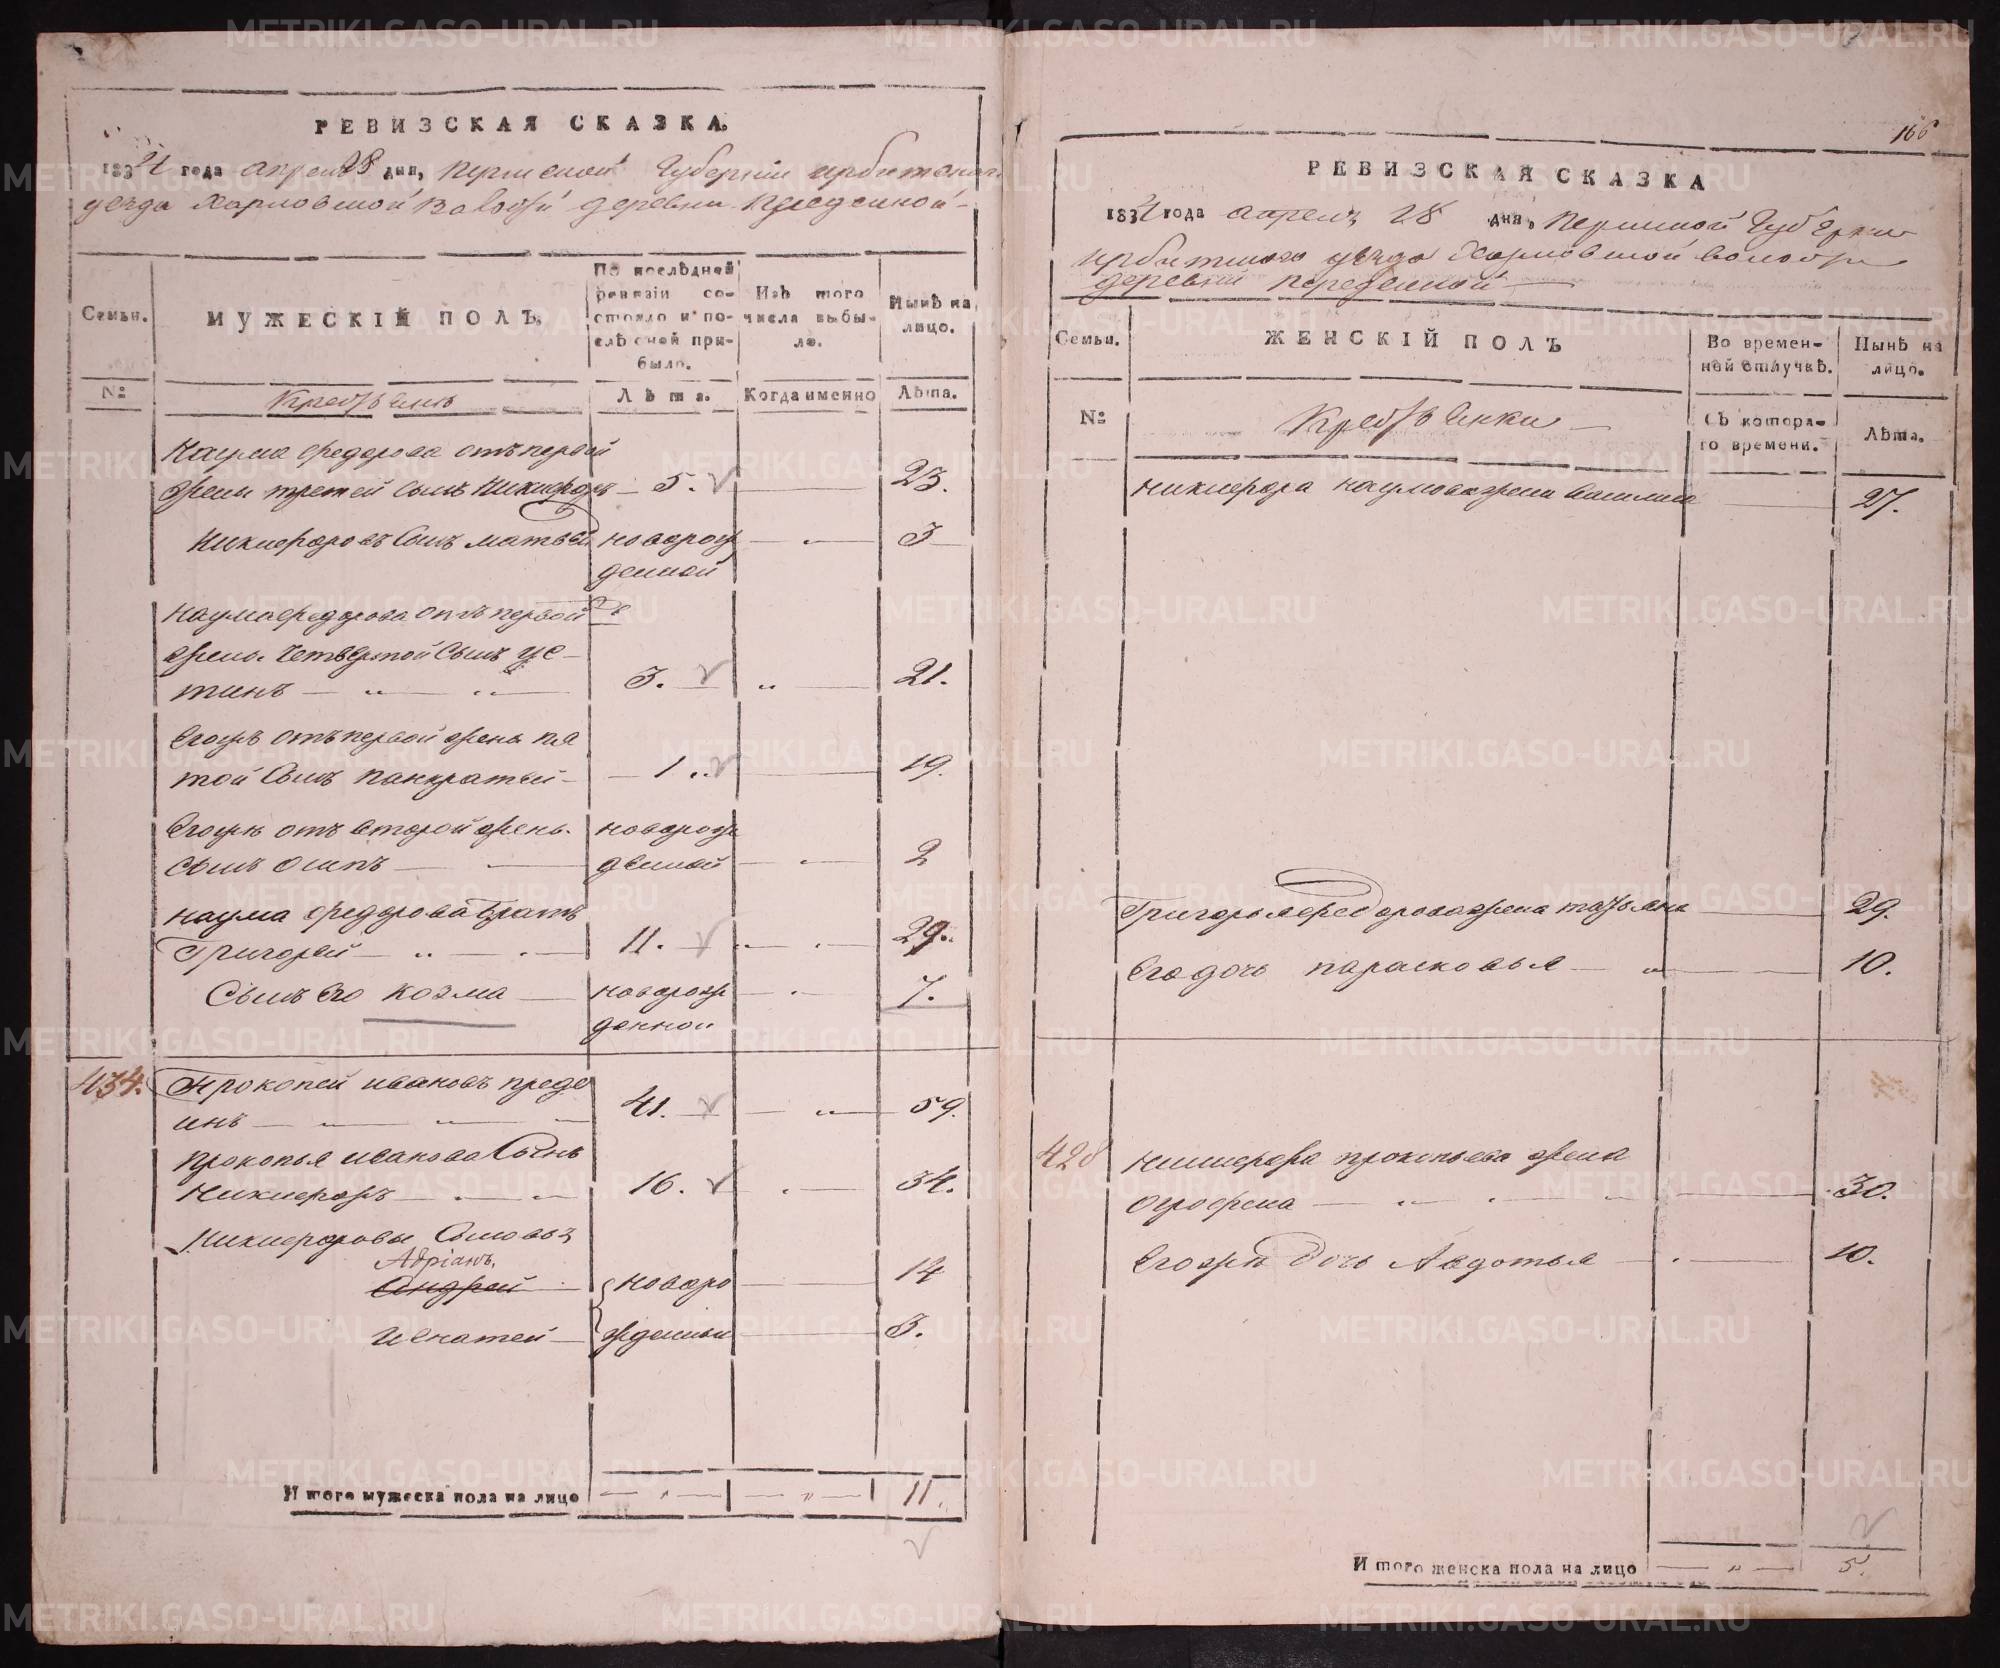 РЕВИЗСКАЯ СКАЗКА.
1834 года апреля 28 дня, Пермской Губернии Ирбитскаго
уезда Харловской волости деревни
Семьи.
МУЖЕСКІЙ ПОЛЪ.
По послѣдней ревизіи состояло и послѣ оной прибыло.
Изъ того числа выбыло.
Нынѣ на лицо.
№
Крестьяне
Лѣта.
Когда именно
Лѣта.
Наума Федорова отъ первой
жены третей сынъ Никифоръ 5. 23.
Никифоровъ сынъ Матвей новорож 3
денной
Наума Федорова отъ первой
жены четвертой сынъ Ус
тинъ 3. 21.
Егожъ отъ первой жены пя
той сынъ Панкратей 1 19.
Егожъ отъ второй жены новорож
сынъ Осипъ денной 2
Наума Федорова братъ
Григорей 11. 29.
Сынъ его Козма новорож 7.
денной
434. Прокопей Ивановъ Преде
инъ 41. 59.
Прокопья Иванова сынъ
Никифоръ 16. 34.
Никифоровы сыновья
Адріанъ.
Андрей новоро 14
Игнатей жденныи 3.
Итого мужеска пола на лицо 11.
166
РЕВИЗСКАЯ СКАЗКА
1834 года апреля 28 дня, Пермской Губернии
Ирбитскаго уезда Харловской волости
деревни
Семьи.
ЖЕНСКІЙ ПОЛЪ
Во временной отлучкѣ.
Нынѣ на лицо.
№
Крестьянки
Съ котораго времени.
Лѣта.
Никифора Наумова жена Василиса 27.
Григорья Федорова жена Татьяна 29.
Его дочь Парасковья 10.
428 Никифора Прокопьева жена
Огрофена 30.
Егожъ дочь Авдотья 10.
Итого женска пола на лицо 5.
METRIKI.GASO-URAL.RU